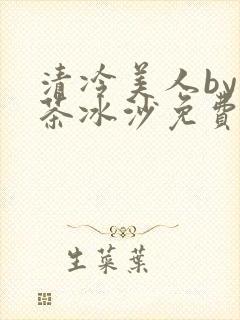 清冷美人by
茶冰沙免費
生菜葉